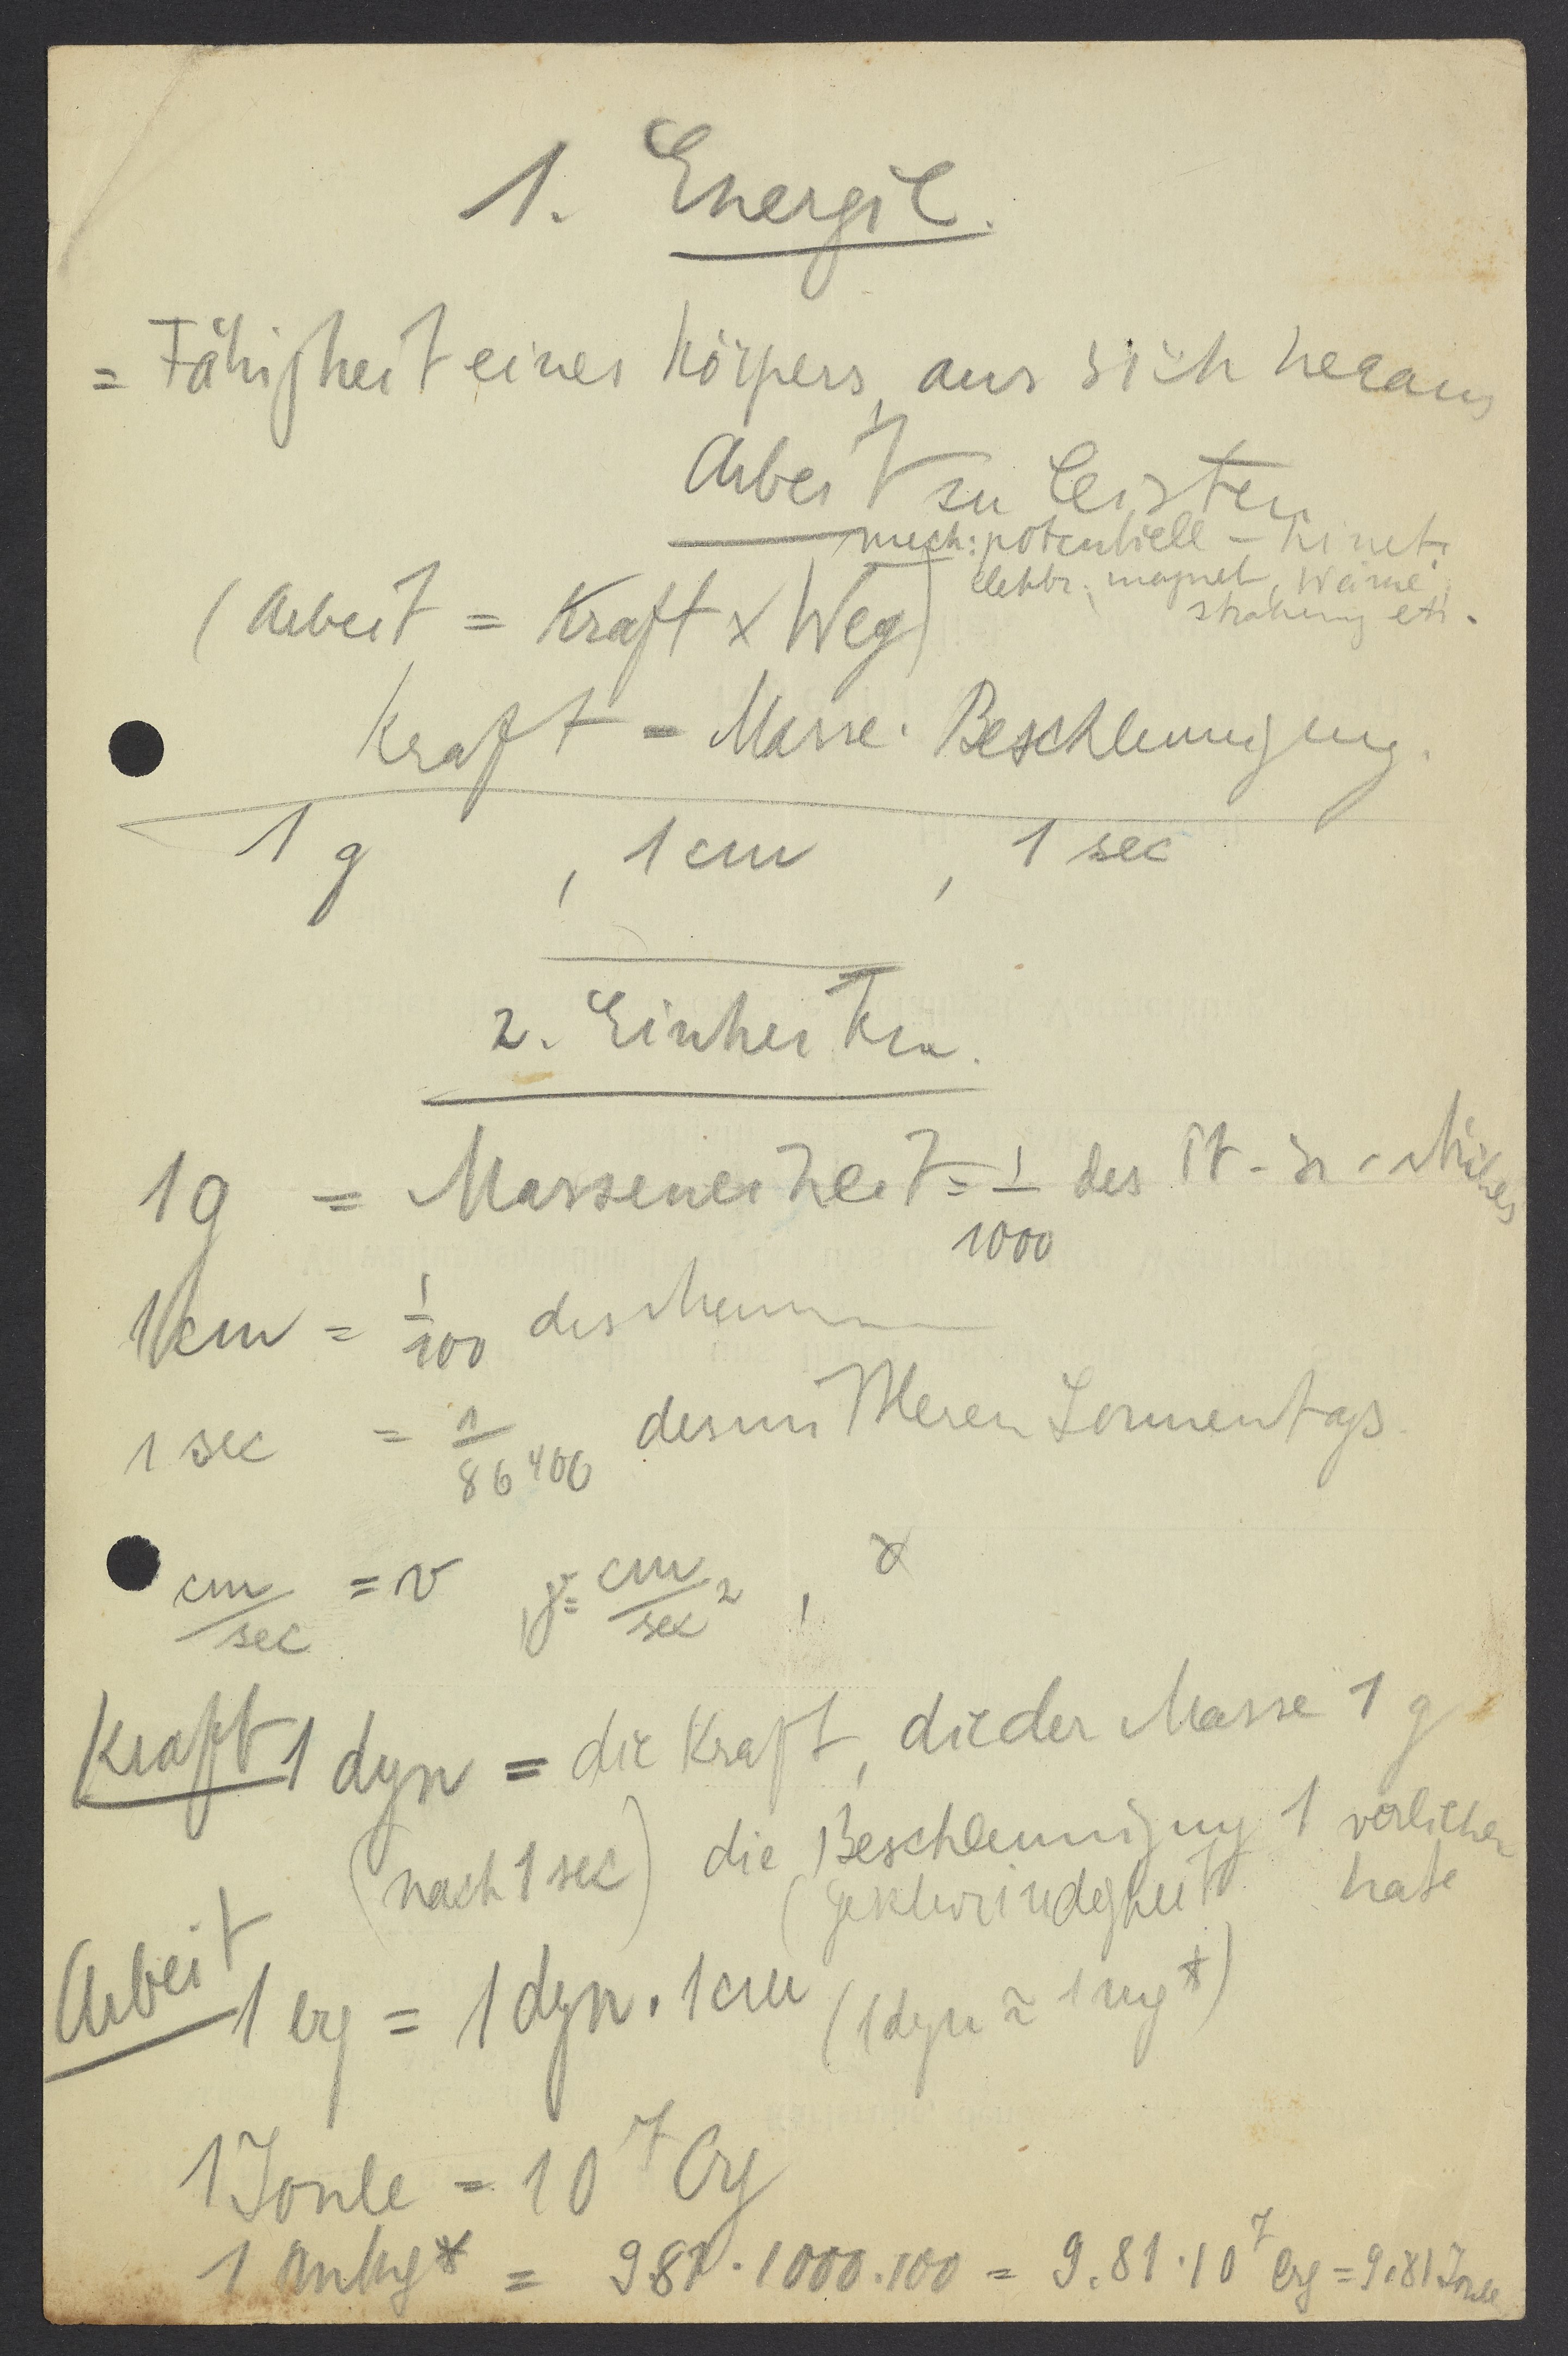 1. Energie.
= Fähigkeit eines Körpers, aus sich heraus
Arbeit zu leisten
mech: potentielle – kinet.
elektr. magnet, Wärme
Strahlung etc.
(Arbeit = Kraft x Weg)
Kraft = Masse · Beschleunigung.
1 g , 1 cm , 1 sec
2. Einheiten.
1 g = Masseneinheit = 1/1000 des Pt - Ir -
1 cm = 1/100 des
1 sec = 1/86400 des mittleren Sonnentags.
cm/sec = v , γ = cm/sec² ,
Kraft 1 dyn = die Kraft, die der Masse 1 g
(nach 1 sec) die Beschleunigung 1 verliehen
(Geschwindigkeit hate
Arbeit 1 erg = 1 dyn · 1 cm (1 dyn ≈ 1 mg*)
1 Joule = 10⁷ Erg
1 mkg* = 981 · 1000 · 100 = 9.81 · 10⁷ Erg = 9.81 Joule